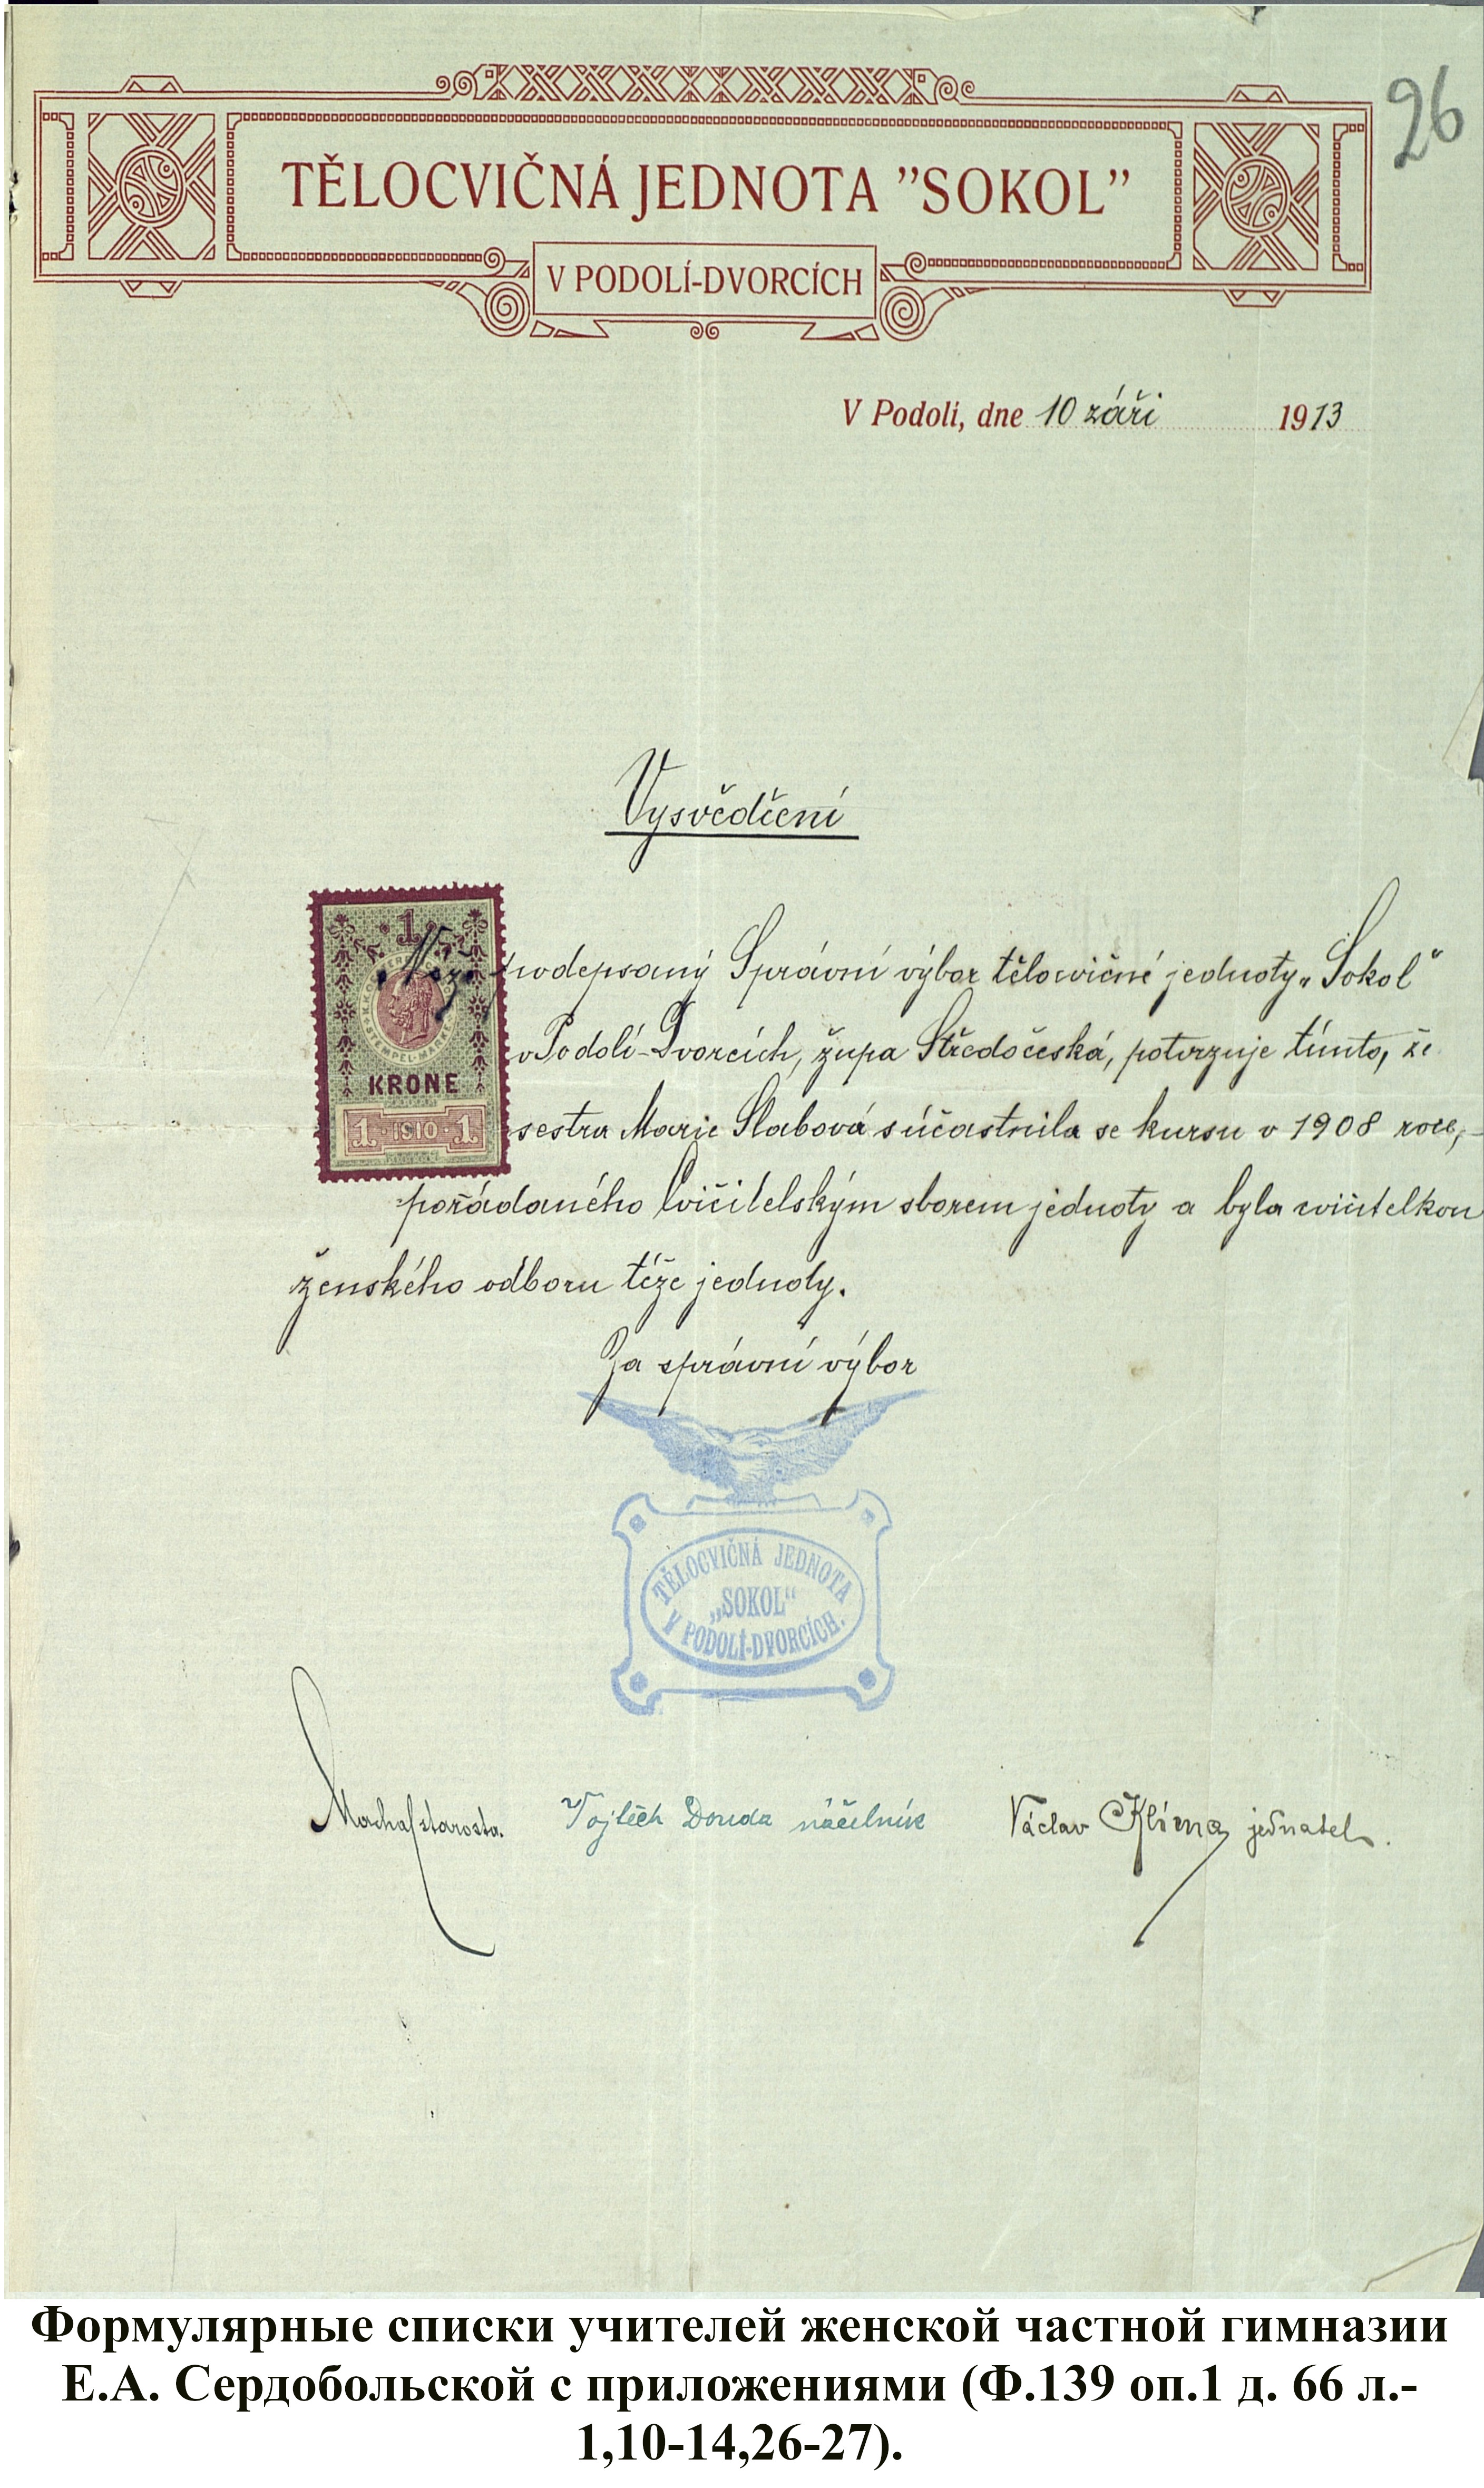 26
TĚLOCVIČNÁ JEDNOTA "SOKOL"
V PODOLÍ-DVORCÍCH
V Podolí, dne 10 září 1913
Vysvědčení
1
KRONE
1 1910 1
Níže podepsaný Správní výbor tělocvičné jednoty „Sokol“
v Podolí-Dvorcích, župa Středočeská, potvrzuje tímto, že
sestra Marie Slabová súčastnila se kursu v 1908 roce,
pořádaného Cvičitelským sborem jednoty a byla cvičitelkou
ženského odboru téže jednoty.
Za správní výbor
TĚLOCVIČNÁ JEDNOTA
„SOKOL“
V PODOLÍ-DVORCÍCH.
Machař starosta. Vojtěch Douda náčelník Václav Klíma jednatel.
Формулярные списки учителей женской частной гимназии
Е.А. Сердобольской с приложениями (Ф.139 оп.1 д. 66 л.-
1,10-14,26-27).